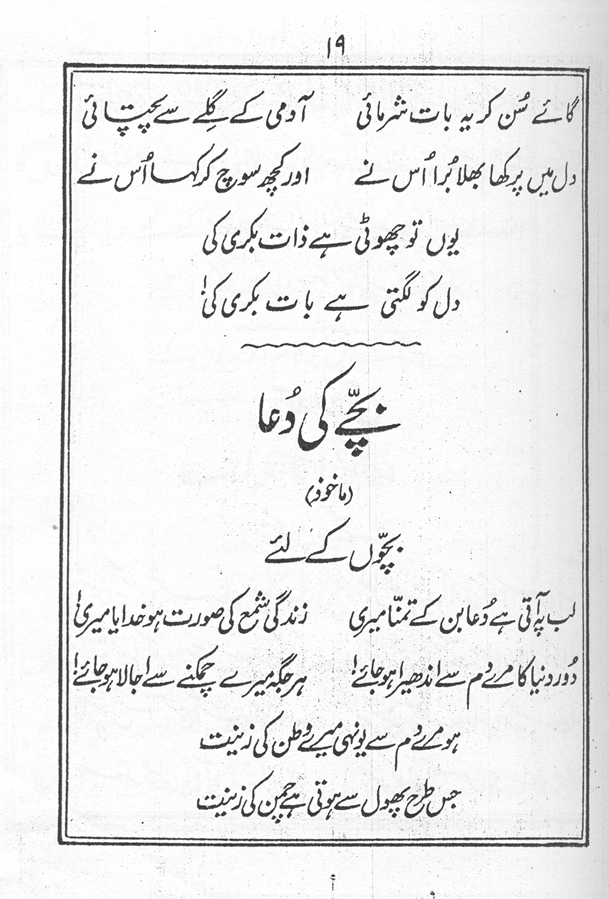 ۱۹
گائے سُن کر یہ بات شرمائی آدمی کے گِلے سے پچھتائی
دل میں پرکھا بھلا بُرا اُس نے اور کچھ سوچ کر کہا اُس نے
یوں تو چھوٹی ہے ذات بکری کی
دل کو لگتی ہے بات بکری کی!
بچّے کی دُعا
(ماخوذ)
بچّوں کے لئے
لب پہ آتی ہے دُعا بن کے تمنّا میری زندگی شمع کی صورت ہو خدایا میری!
دُور دنیا کا مرے دم سے اندھیرا ہو جائے! ہر جگہ میرے چمکنے سے اجالا ہو جائے!
ہو مرے دم سے یونہی میرے وطن کی زینت
جس طرح پھول سے ہوتی ہے چمن کی زینت